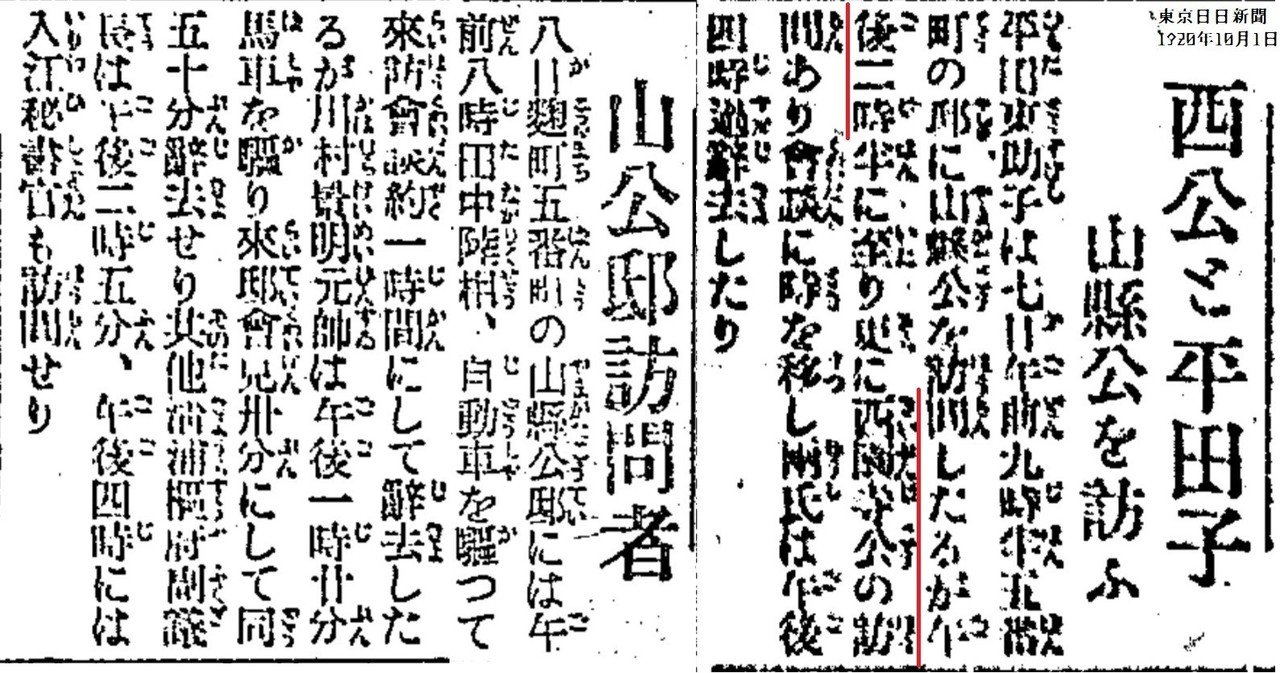 東京日日新聞
1920年10月1日
西公と平田子
山縣公を訪ふ
平田東助子は七日午前九時半五番
町の邸に山縣公を訪問したるが午
後二時半に至り更に西園寺公の訪
問あり會談に時を移し兩氏は午後
四時過辭去したり
山公邸訪問者
八日麹町五番町の山縣公邸には午
前八時田中陸相、自動車を驅つて
來訪會談約一時間にして辭去した
るが川村景明元帥は午後一時廿分
馬車を驅り來邸會見卅分にして同
五十分辭去せり其他清浦樞府副議
長は午後二時五分、午後四時には
入江秘書官も訪問せり